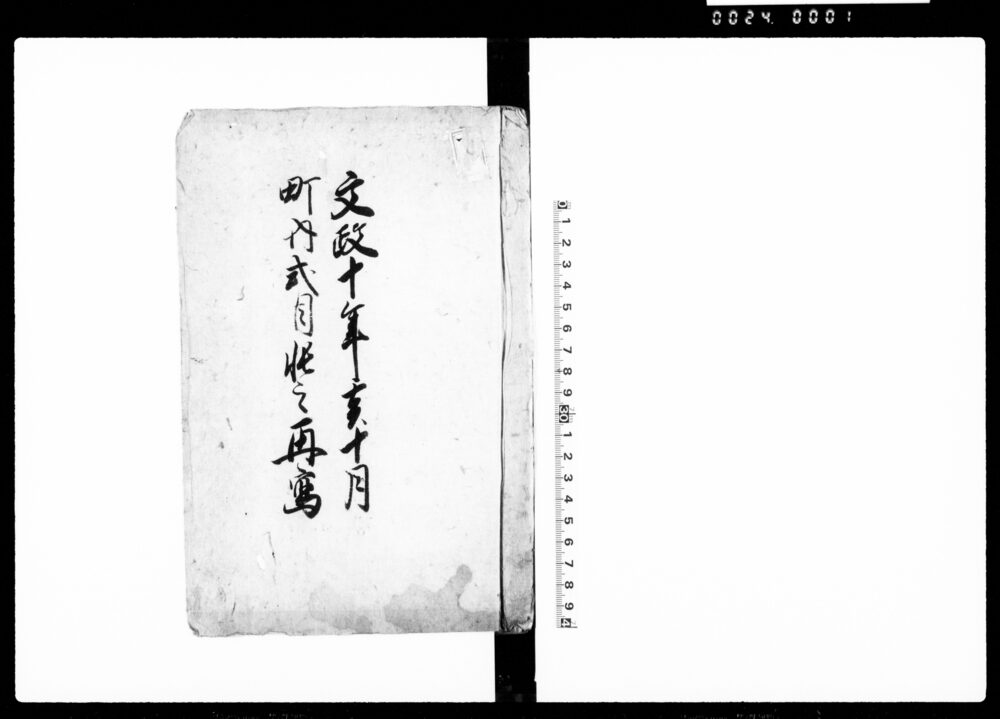 0024. 0001
文政十年亥十月
町内式目帳之再寫
0 1 2 3 4 5 6 7 8 9 30 1 2 3 4 5 6 7 8 9 4